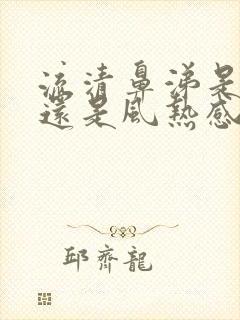 流清鼻涕是
還是風熱感
邱齊龍